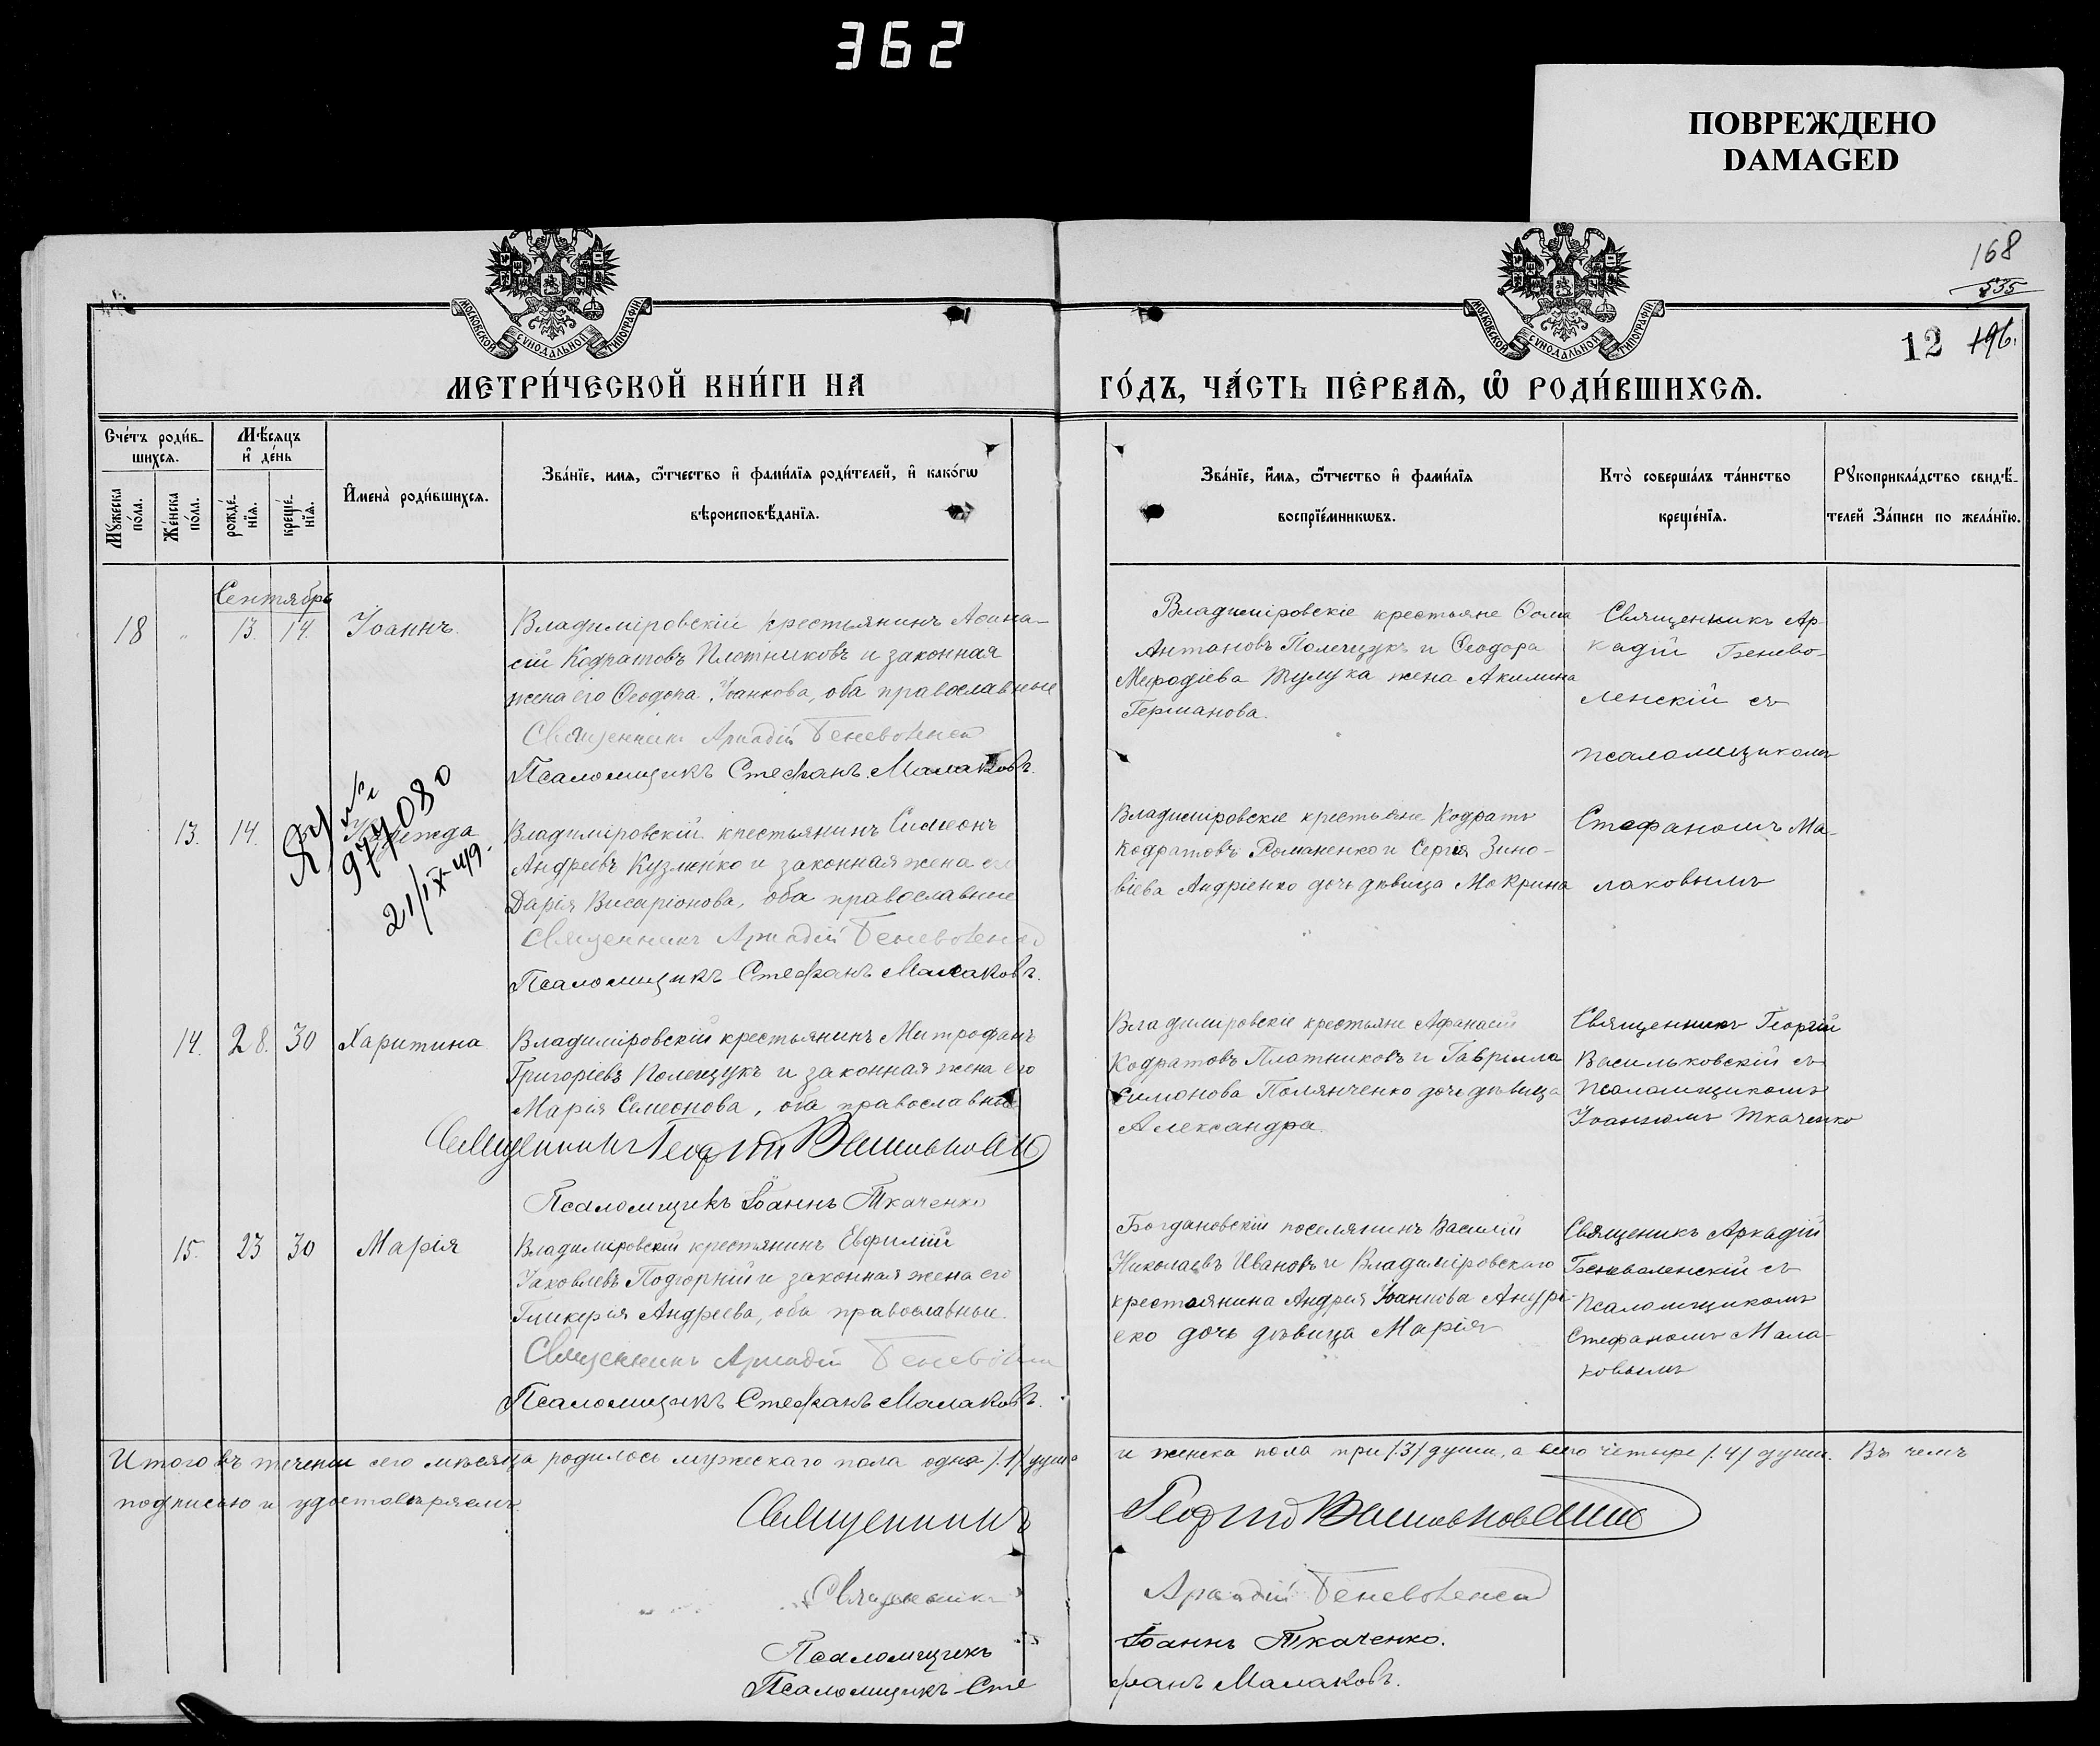 362
ПОВРЕЖДЕНО
DAMAGED
168
535
12 196.
МОСКОВСКОЙ СѴНОДАЛЬНОЙ ТИПОГРАФІИ
МОСКОВСКОЙ СѴНОДАЛЬНОЙ ТИПОГРАФІИ
МЕТРИ́ЧЕСКОЙ КНИ́ГИ НА
ГО́ДЪ, ЧА́СТЬ ПЕ́РВАѦ, Ѡ҆ РОДИ́ВШИХСѦ.
Сче́тъ роди́в-
шихсѧ.
Мѣ́сѧцъ
и҆ де́нь
Мꙋжеска
по́ла.
Же́нска
по́ла.
рожде́-
нїѧ.
креще́-
нїѧ.
И҆мена̀ роди́вшихсѧ.
Зва́нїе, имѧ, ѻ҆́тчество и҆ фами́лїѧ роди́телей, и҆ како́гѡ
вѣроисповѣ́данїѧ.
Зва́нїе, и҆́мѧ, ѻ҆́тчество и҆ фами́лїѧ
воспрїе́мникѡвъ.
Кто̀ соверша́лъ та́инство
креще́нїѧ.
Рꙋкоприкла́дство свидѣ́-
телей За́писи по жела́нїю.
Сентябрь
18 " 13. 14. Іоаннъ.
Владиміровскій крестьянинъ Аѳана-
сій Кодратовъ Плотниковъ и законная
жена его Ѳеодора Іоаннова, оба православные
Священникъ Аркадій Беневоленск
Псаломщикъ Стефанъ Малаковъ.
Владиміровскіе крестьяне Ѳома
Антоновъ Полещукъ и Ѳеодора
Меѳодіева жена Акилина
Германова.
Священникъ Ар
кадій Бенево-
ленскій съ
псаломщикомъ
13. 14.
977080
21/IX
Владиміровскій крестьянинъ Симеонъ
Андреевъ Кузменко и законная жена его
Дарія Висаріонова, оба православные
Священникъ Аркадій Беневоленск
Псаломщикъ Стефанъ Малаковъ.
Владиміровскіе крестьяне Кодратъ
Кодратовъ Романенко и Сергія Зино-
віева Андріенко дочь дѣвица Мокрина
Стефаномъ Ма-
лаковымъ
14. 28. 30 Харитина
Владиміровскій крестьянинъ Митрофанъ
Григоріевъ Полещукъ и законная жена его
Марія Семеонова, оба православные
Священникъ Георгій Васильковскій
Псаломщикъ Іоаннъ Ткаченко
Владиміровскіе крестьяне Афанасій
Кодратовъ Платниковъ и Гавріила
Симонова Полянченко дочь дѣвица
Александра.
Священникъ Георгій
Васильковскій съ
Псаломщикомъ
Іоанномъ Ткаченко
15. 23 30 Марія
Владиміровскій крестьянинъ Евфимій
Іаковлевъ Подгорній и законная жена его
Гликерія Андреева, оба православные.
Священникъ Аркадій Беневолен
Псаломщикъ Стефанъ Малаковъ.
Богдановскій поселянинъ Василій
Николаевъ Ивановъ и Владиміровскаго
крестьянина Андрея Іоаннова
дочь дѣвица Марія
Священикъ Аркадій
Беневоленскій съ
Псаломщикомъ
Стефаномъ Мала-
ковымъ
Итого въ теченіи сего мѣсяца родилось мужескаго пола одна /.1/ душа и женска пола три /.3/ души, а всего четыре /.4/ души. Въ чемъ
подписью и удостовѣряемъ.
Священникъ Георгій Васильковскій
Священникъ Аркадій Беневоленск
Псаломщикъ Іоаннъ Ткаченко.
Псаломщикъ Сте фанъ Малаковъ.